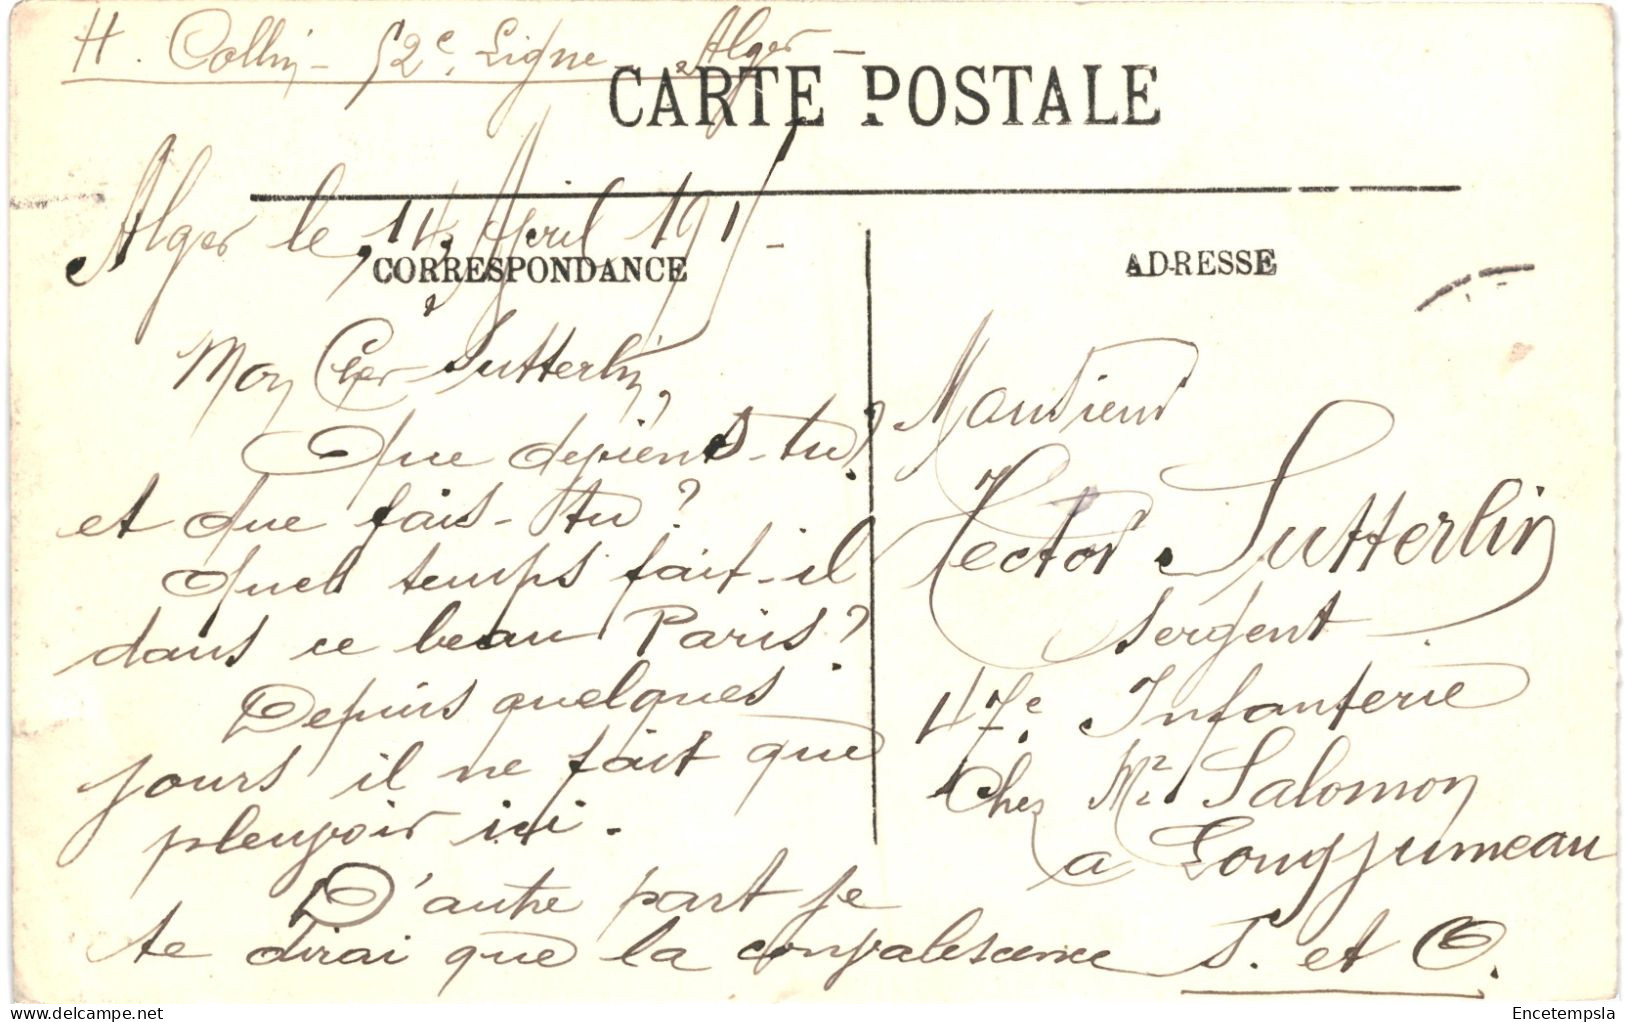 H. Collin - 52e Ligne Alger -
CARTE POSTALE
Alger le, 14, Avril 1915 -
CORRESPONDANCE
Mon Cher Sutterlin,
Que deviens-tu?
et que fais-tu?
Quel temps fait-il
dans ce beau Paris?
Depuis quelques
jours il ne fait que
pleuvoir ici.
D'autre part je
te dirai que la convalescence
ADRESSE
Monsieur
Hector Sutterlin
Sergent
47e Infanterie
Chez Mr Salomon
a Longjumeau
S. et O.
Encetempsla